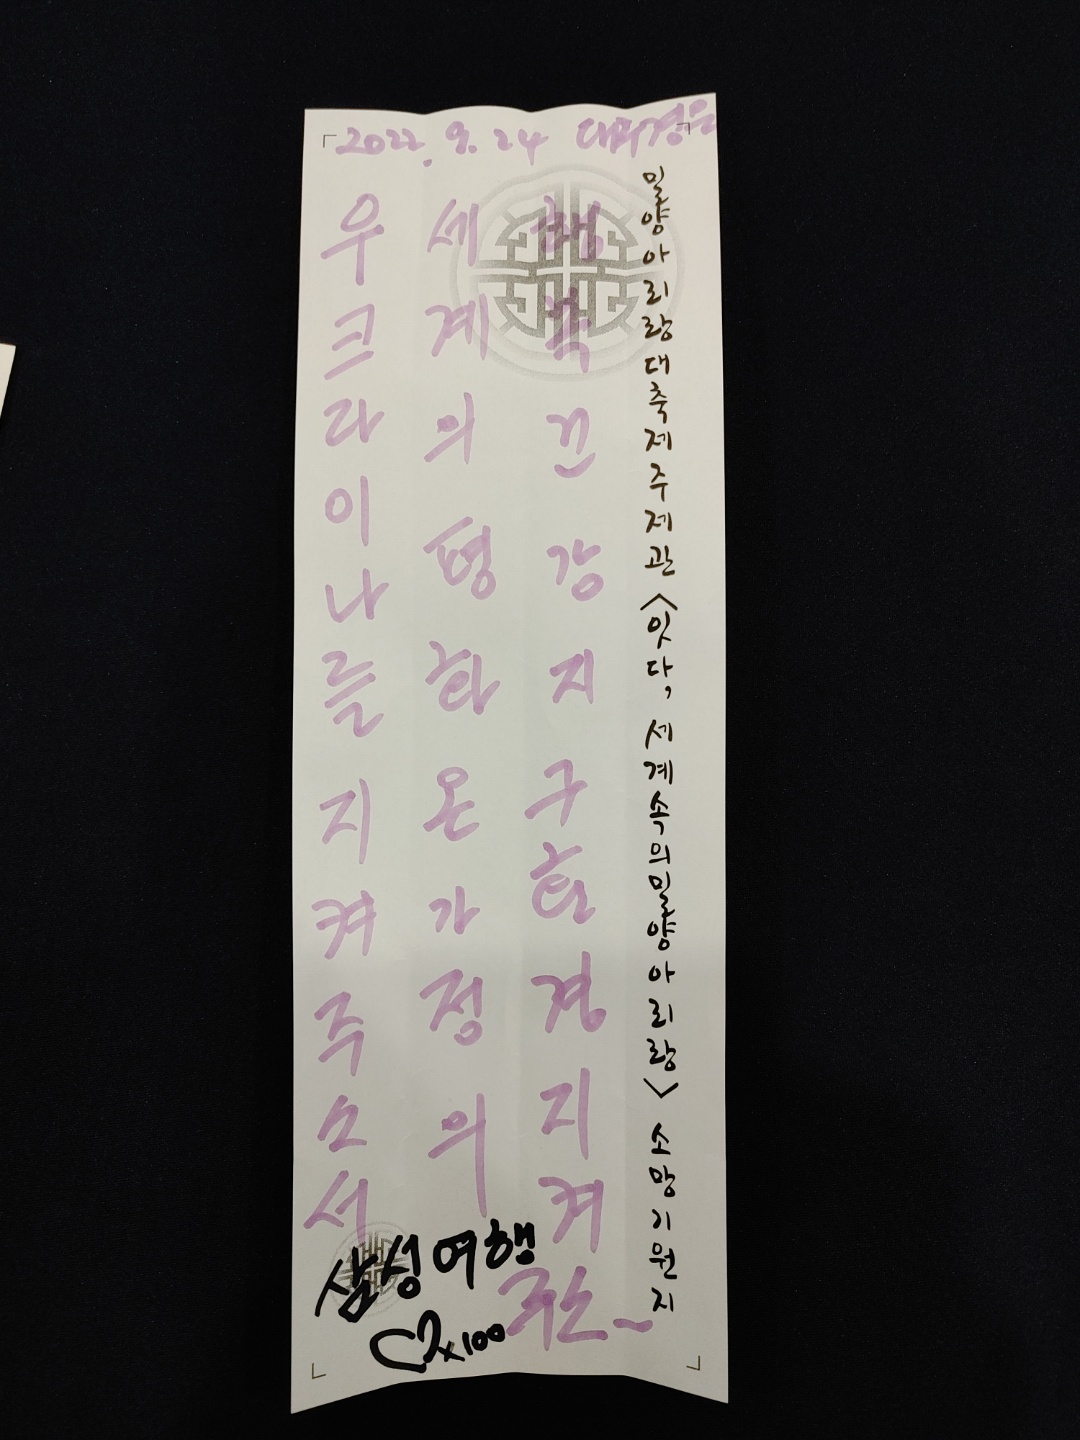 2022. 9. 24
우크라이나를지켜주소서
세계의평화온가정의
행복건강지구환경지켜주소~
밀양아리랑대축제주제관 <잇다, 세계속의밀양아리랑> 소망기원지
삼성여행
♡x100